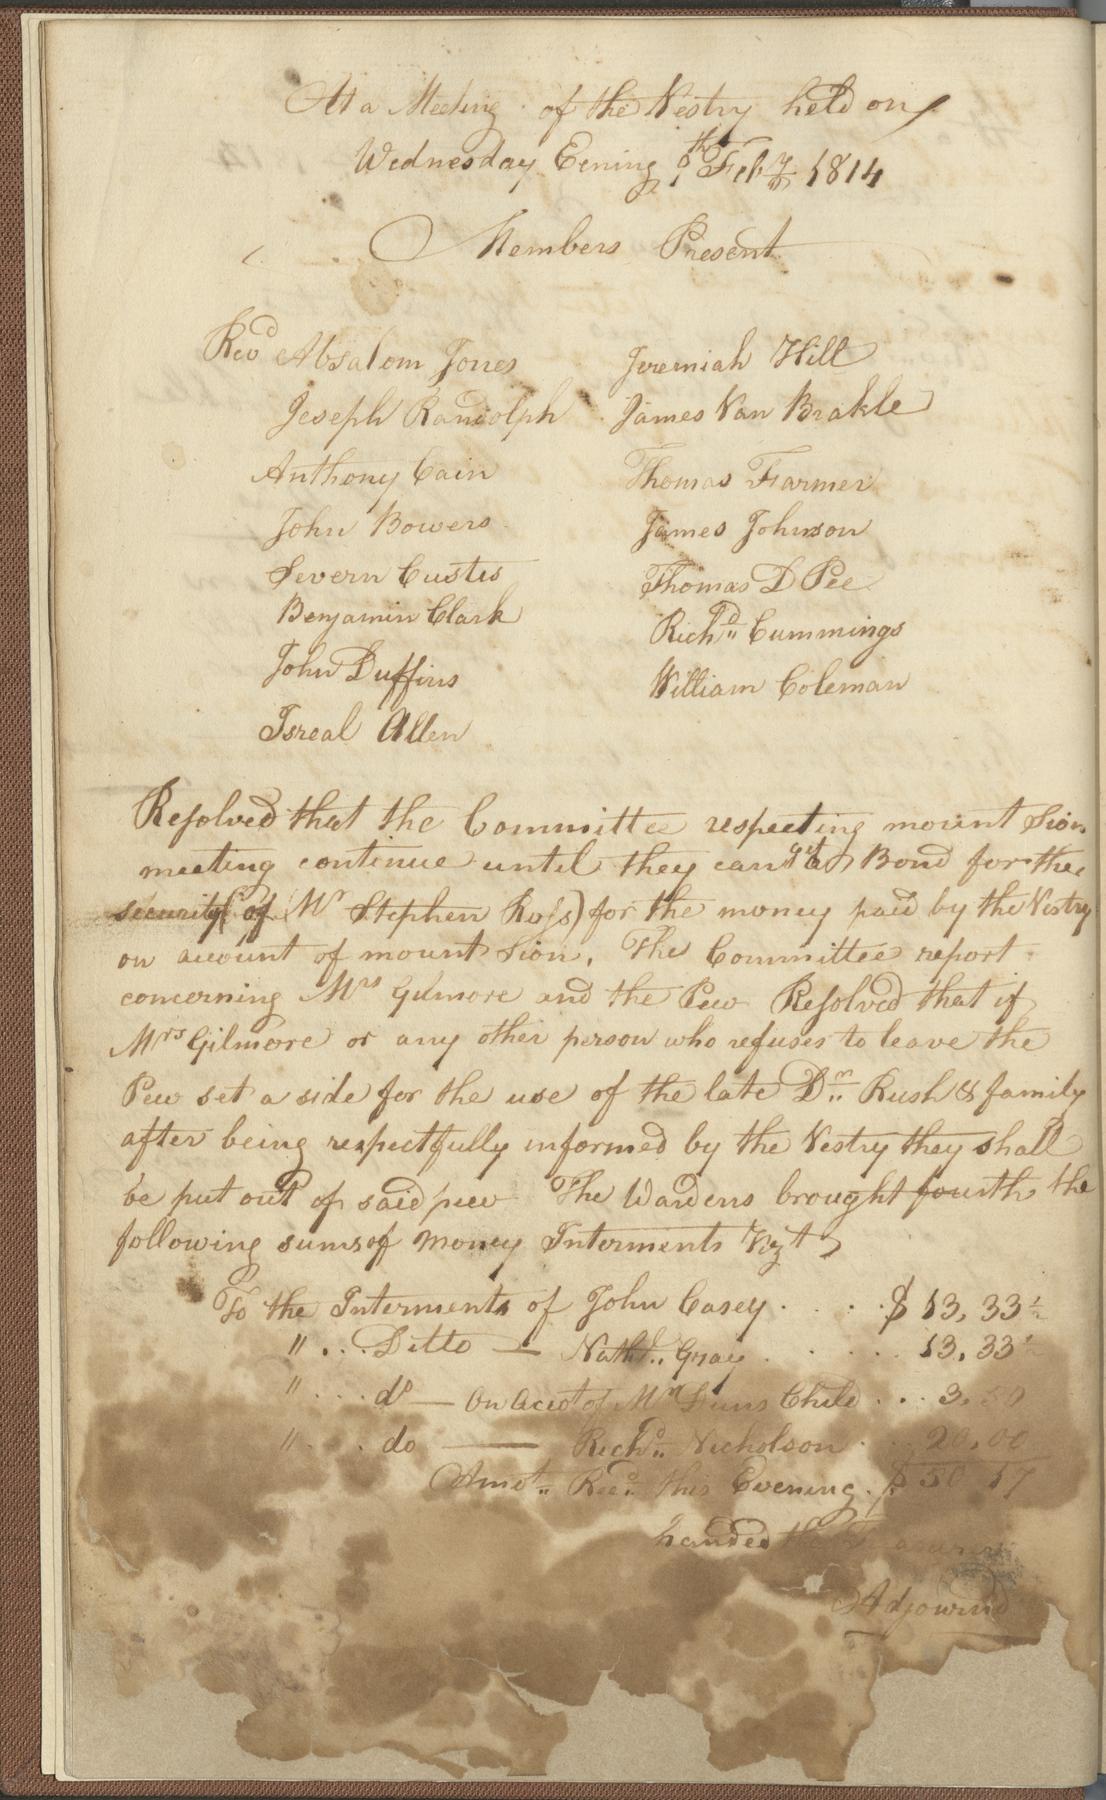 At a Meeting of the Vestry held on
Wednesday Evening Feby 1814
Members Present
Revd Absalom Jones
Joseph Randolph
Anthony Cain
John Bowers
Severn Custis
Benjamin Clark
John Duffins
Isreal Allen
Jeremiah Hill
James Van Brakle
Thomas Farmer
James Johnson
Thomas D Pee
Richd Cummings
William Coleman
Resolved that the Committee respecting mount Sion
meeting continue until they can get a Bond for the
security (of Mr Stephen Ross) for the money paid by the Vestry
on account of mount Sion. The Committee report
concerning Mrs Gilmore and the Pew Resolved that if
Mrs Gilmore or any other person who refuses to leave the
Pew set a side for the use of the late Dr Rush & family
after being respectfully informed by the Vestry they shall
be put out of said pew The Wardens brought fourth the
following sums of money Interments Vizt
To the Interments of John Casey . . . . $ 13,33½
" . . . Ditto — Nathl Gray . . . . . 13.33½
" . . . . do — on acct of Mr Child . . . 3.50
" . . . do — Richd Nicholson . . . 20,00
Amot Recd this Evening . $ 50 17
handed the Treasurer
Adjournd